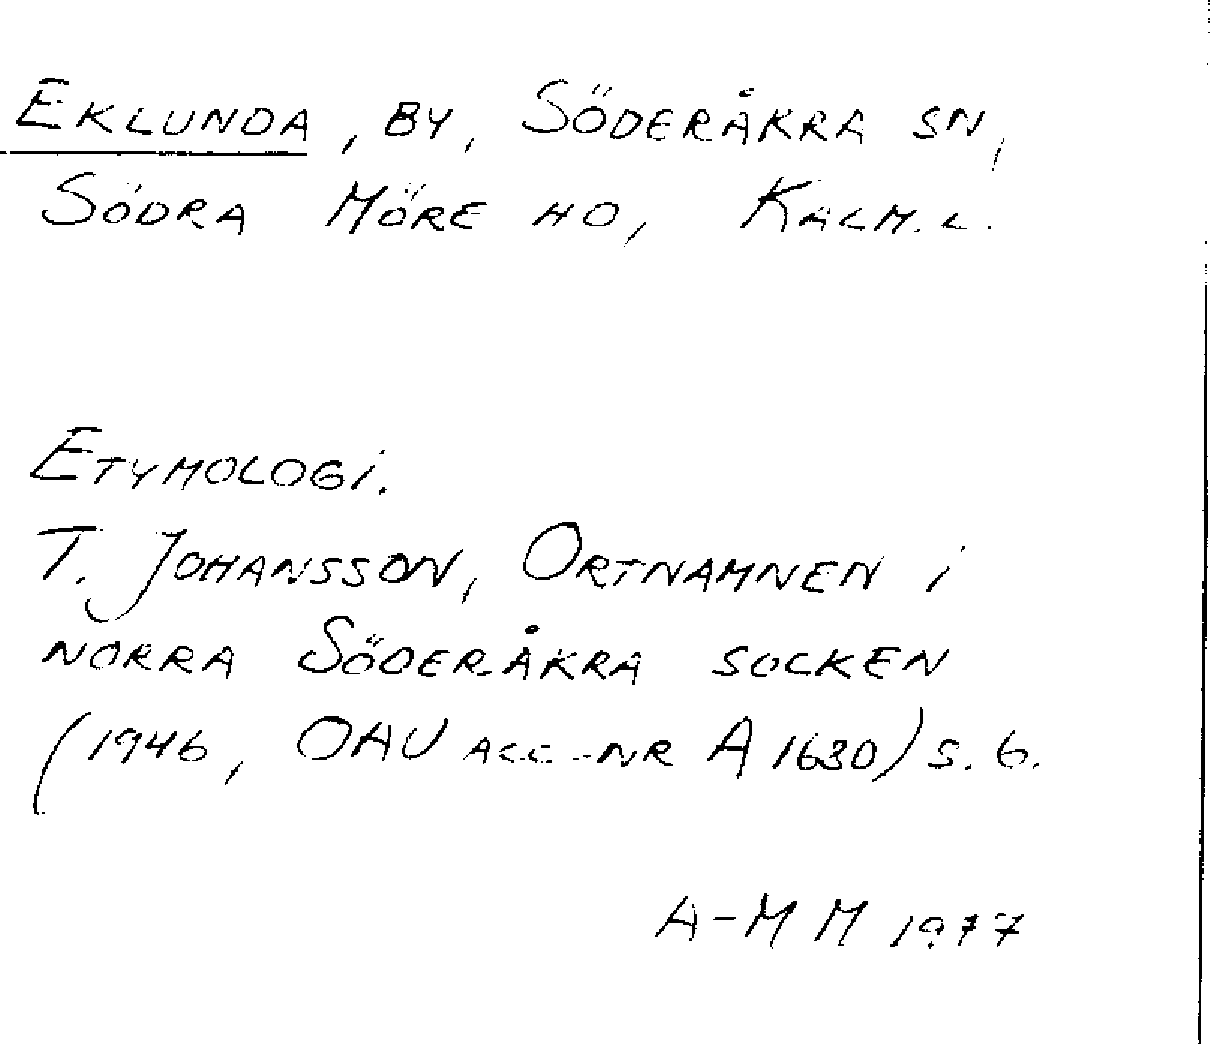 EKLUNDA, BY, SÖDERÅKRA SN,
SÖDRA MÖRE HD, KALM. L.
ETYMOLOGI.
T. JOHANSSON, ORTNAMNEN I
NORRA SÖDERÅKRA SOCKEN
(1946, OAU ACC.-NR A 1630) S. 6.
A-MM 1977